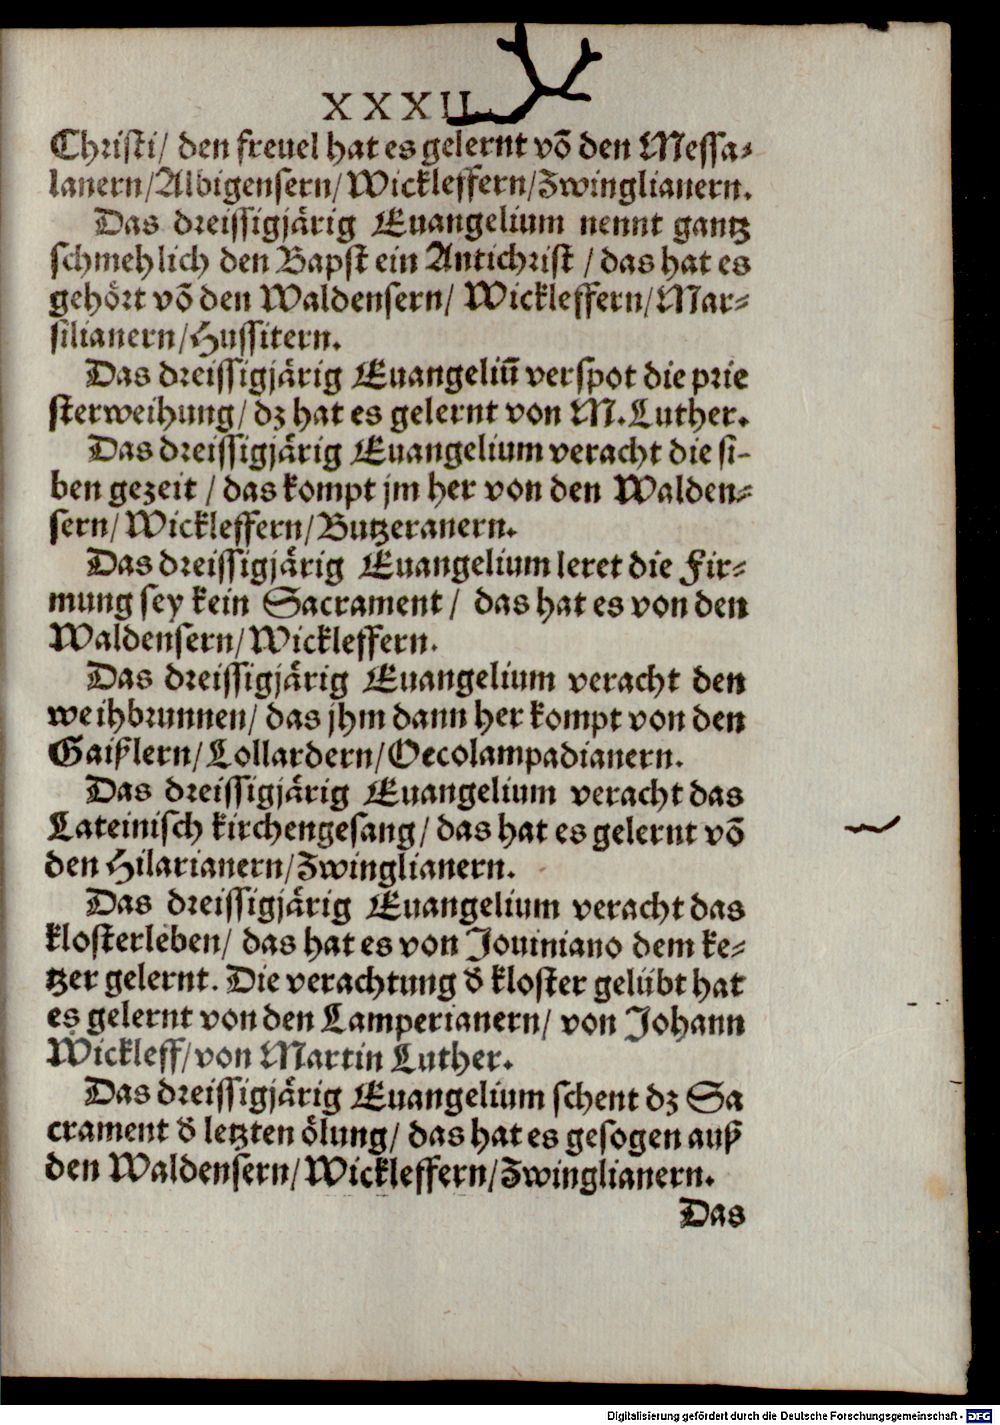 XXXII
Christi/ den freuel hat es gelernt võ den Messa⸗
lanern/Albigensern/Wickleffern/Zwinglianern.
Das dreissigjärig Euangelium nennt gantz
schmehlich den Bapst ein Antichrist / das hat es
gehört võ den Waldensern/ Wickleffern/Mar⸗
silianern/Hussitern.
Das dreissigjärig Euangeliũ verspot die prie
sterweihung/ dz hat es gelernt von M.Luther.
Das dreissigjärig Euangelium veracht die si-
ben gezeit / das kompt jm her von den Walden⸗
sern/ Wickleffern/Butzeranern.
Das dreissigjärig Euangelium leret die Fir⸗
mung sey kein Sacrament / das hat es von den
Waldensern/Wickleffern.
Das dreissigjärig Euangelium veracht den
weihbrunnen/ das jhm dann her kompt von den
Gaißlern/Lollardern/Oecolampadianern.
Das dreissigjärig Euangelium veracht das
Lateinisch kirchengesang/ das hat es gelernt võ
den Hilarianern/Zwinglianern.
Das dreissigjärig Euangelium veracht das
klosterleben/ das hat es von Jouiniano dem ke⸗
tzer gelernt. Die verachtung d̕ kloster gelübt hat
es gelernt von den Lamperianern/ von Johann
Wickleff/von Martin Luther.
Das dreissigjärig Euangelium schent dz Sa
crament d̕ letzten ölung/ das hat es gesogen auß
den Waldensern/Wickleffern/Zwinglianern.
Das
Digitalisierung gefördert durch die Deutsche Forschungsgemeinschaft - DFG